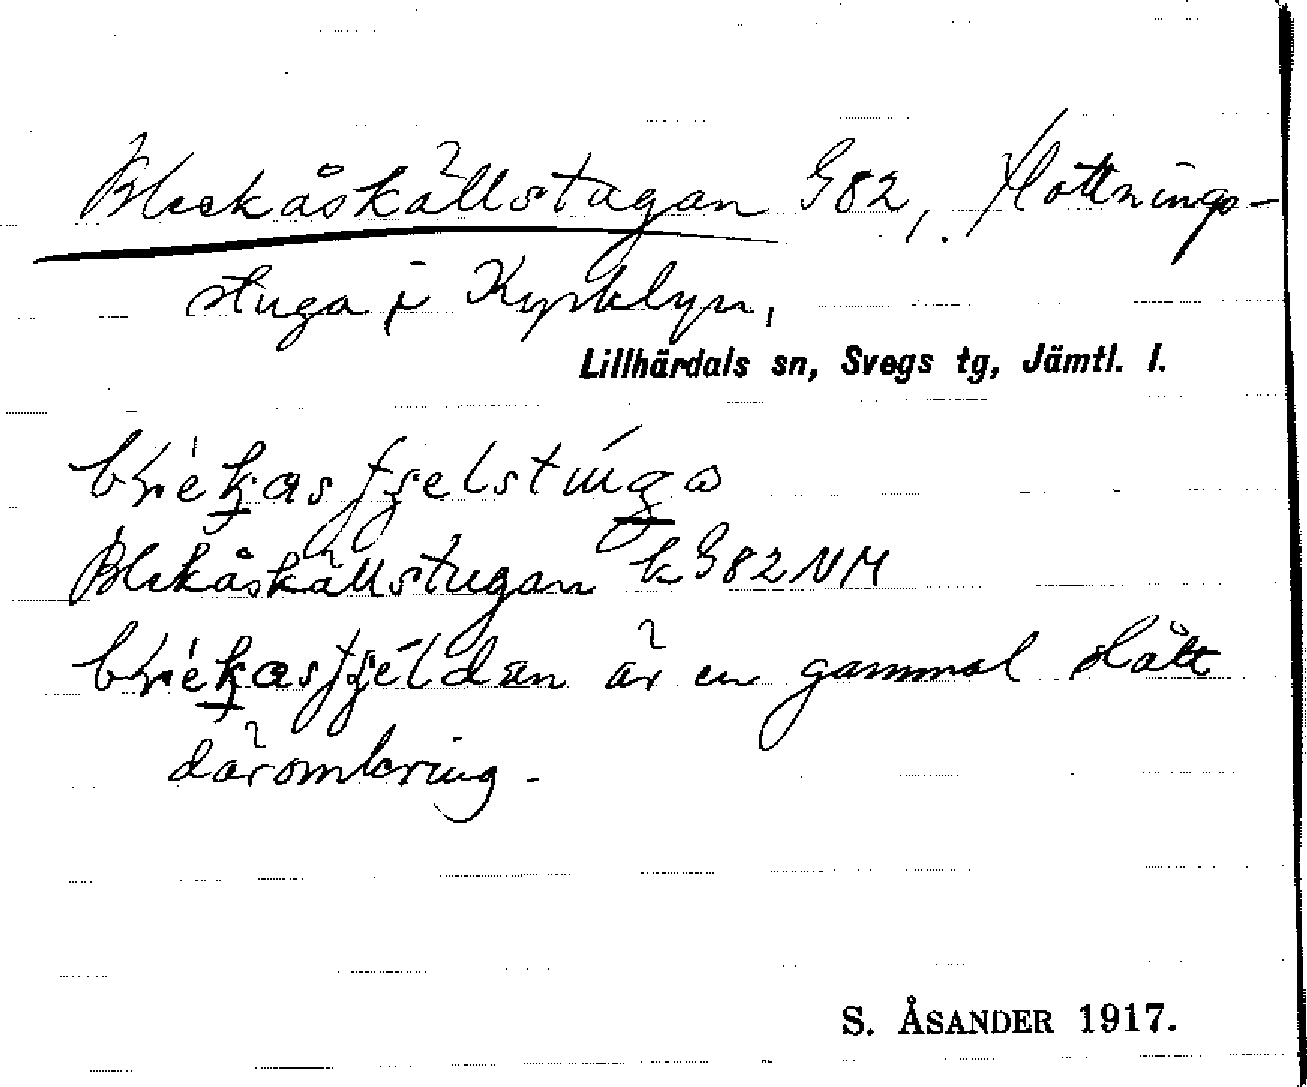 Bleckåskällstugan G82, Flottnings-
stuga i Kyrkbyn,
Lillhärdals sn, Svegs tg, Jämtl. l.
Blekåskällstugan k G82NM
är en gammal slått
däromkring.
S. ÅSANDER 1917.